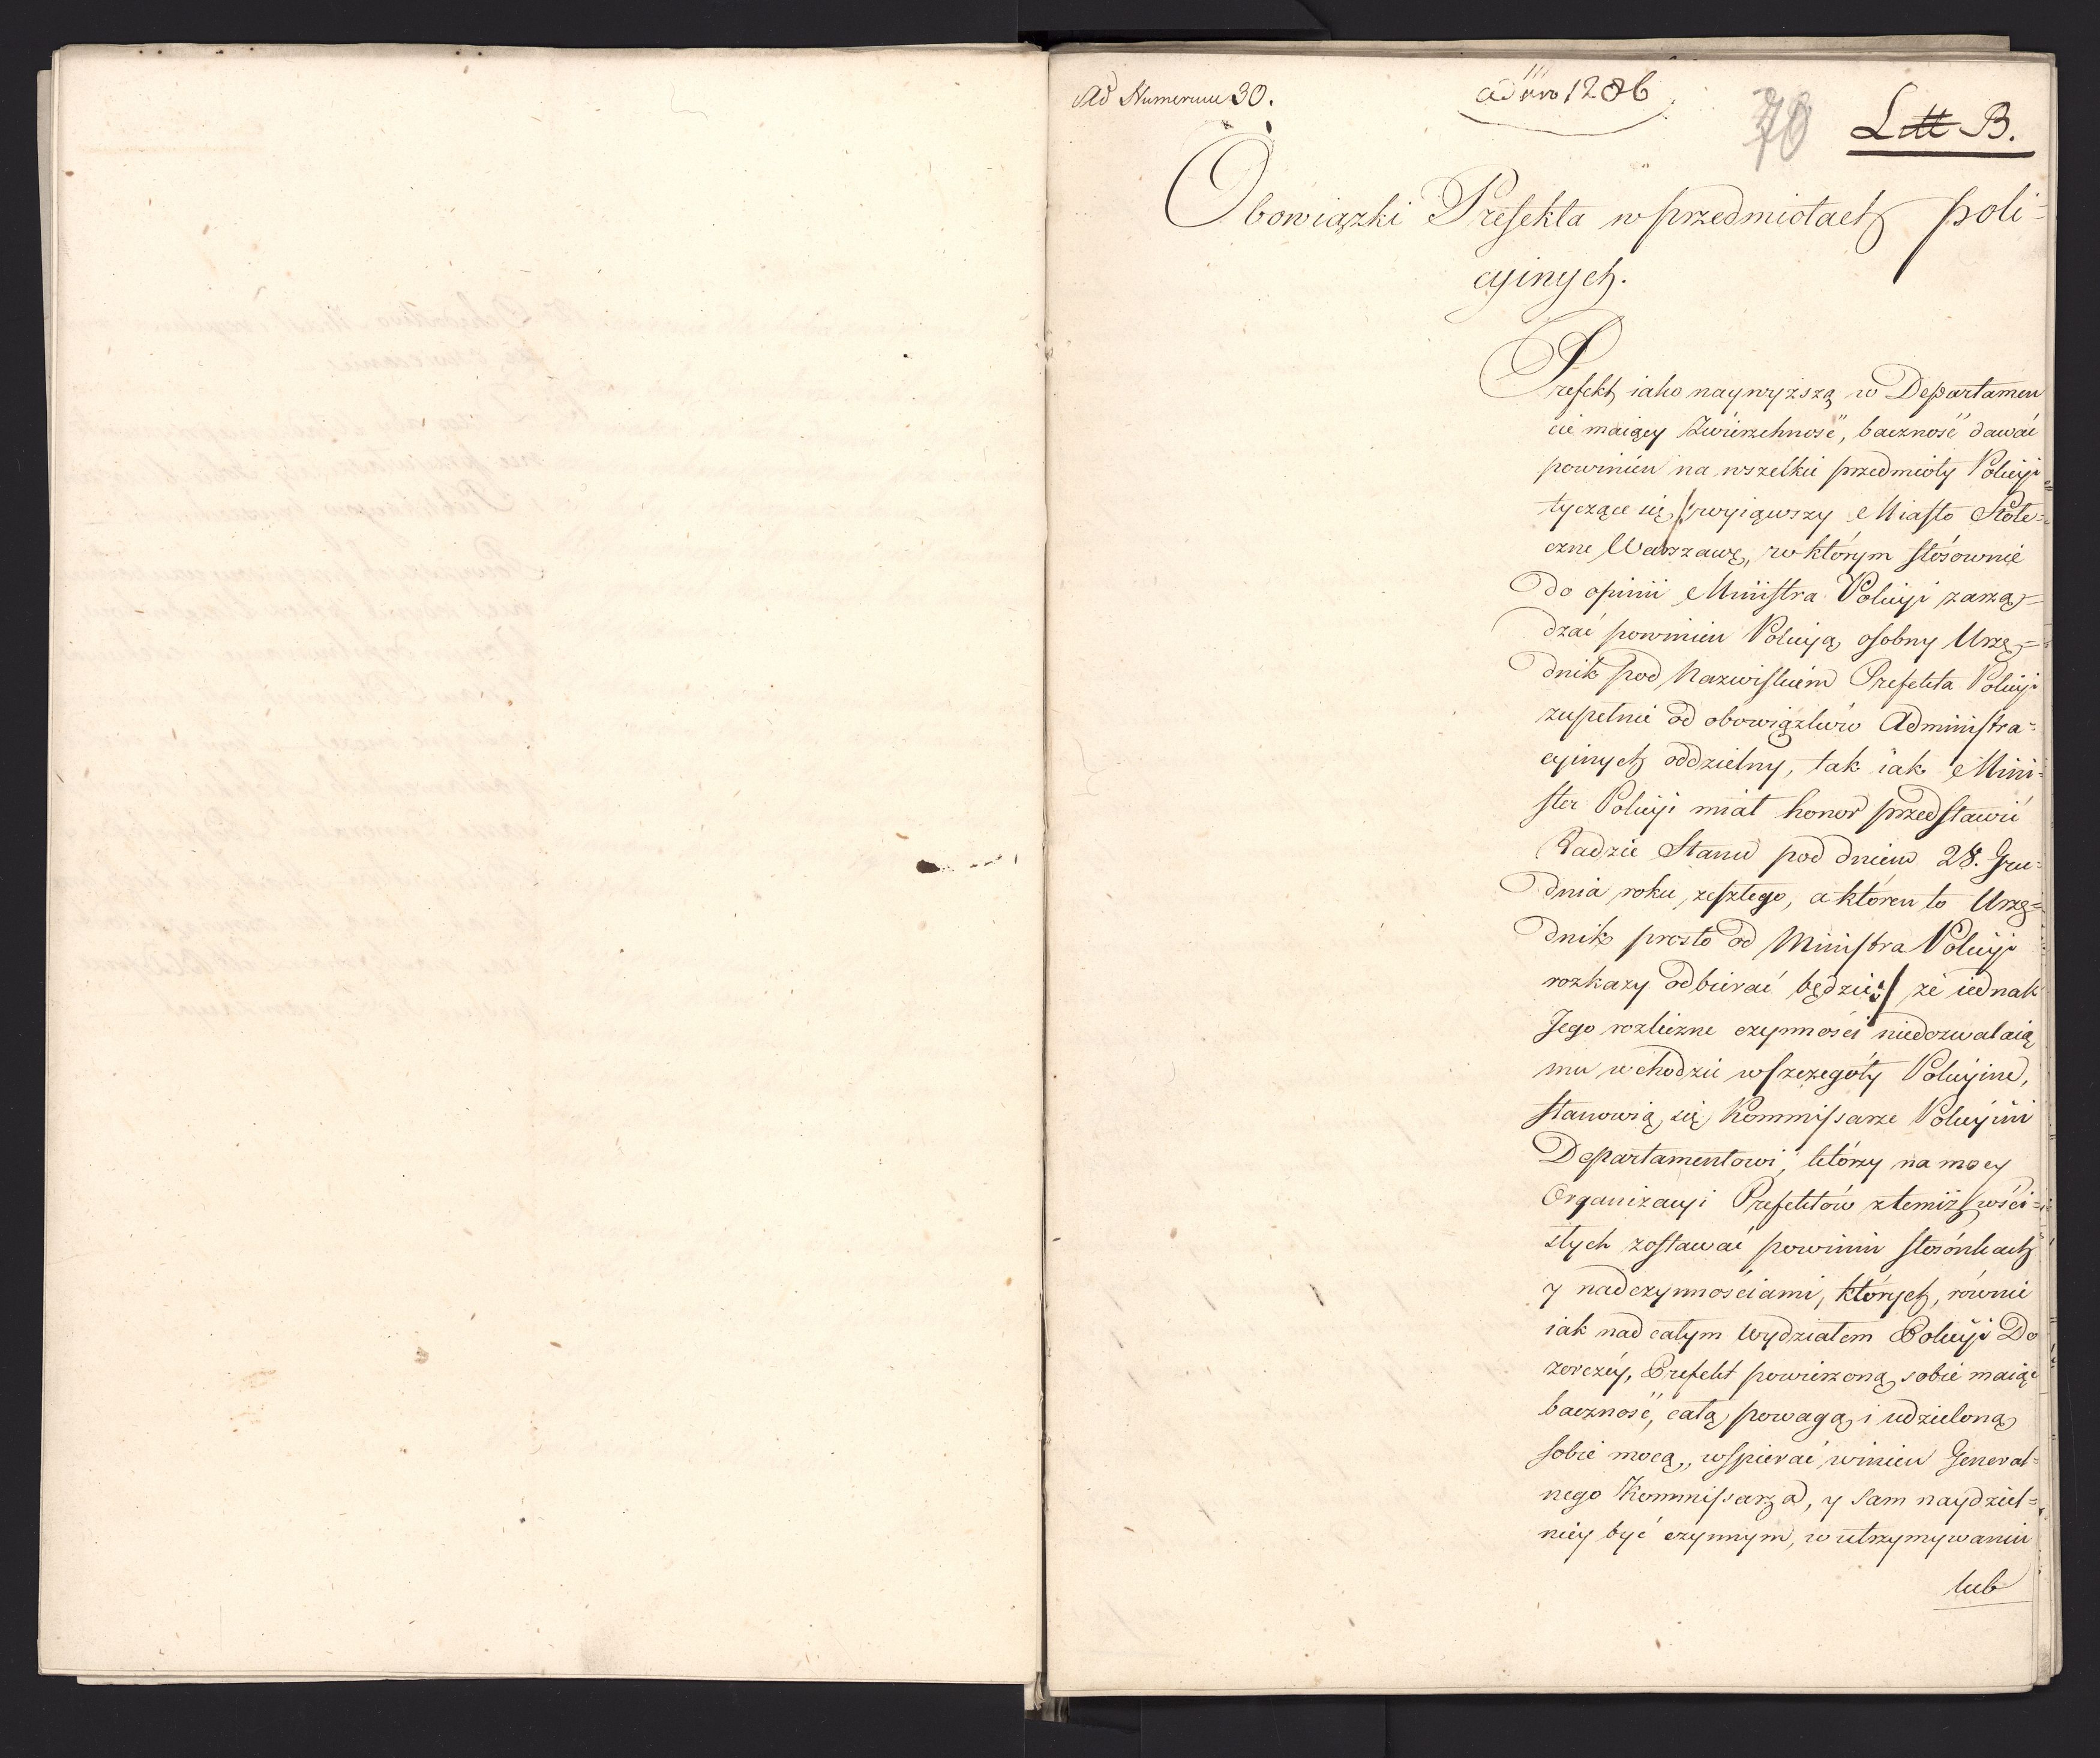 Ad Numerum 30.
ad nro 1286
78
Litt B.
Obowiązki Prefekta w przedmiotach poli=
cyinych.
Prefekt, iako naywyższą w Departamen
cie maiący Zwierzchność, baczność dawać
powinien na wszelkie przedmioty Policyi
tyczące się /: wyiąwszy Miasto Stołe=
czne Warszawę, w którym stósownie
do opinii Ministra Policyi zarzą=
dzać powinien Policyą osobny Urzę=
dnik pod Nazwiskiem Prefekta Policyi
zupełnie od obowiązków Administra=
cyinych oddzielny, tak iak Mini=
ster Policyi miał honor przedstawić
Radzie Stanu pod dniem 28. Gru=
dnia roku zeszłego, a któren to Urzę=
dnik prosto od Ministra Policyi
rozkazy odbierać będzie :/ że iednak
Jego rozliczne czynności niedozwalaią
mu wchodzić w szczegóły Policyine,
stanowią się Kommissarze Policyini
Departamentowi, którzy na mocy
Organizacyi Prefektów z temiż w ści=
słych zostawać powinni stosónkach
y nad czynnościami, których, równie
iak nad całym Wydziałem Policyi Do
zorczéy, Prefekt powierzoną sobie maiąc
baczność, całą powagą i udzieloną
sobie mocą, wspierać winien General=
nego Kommissarza, y sam naydziel=
niey być czynnym, w utrzymywaniu
lub